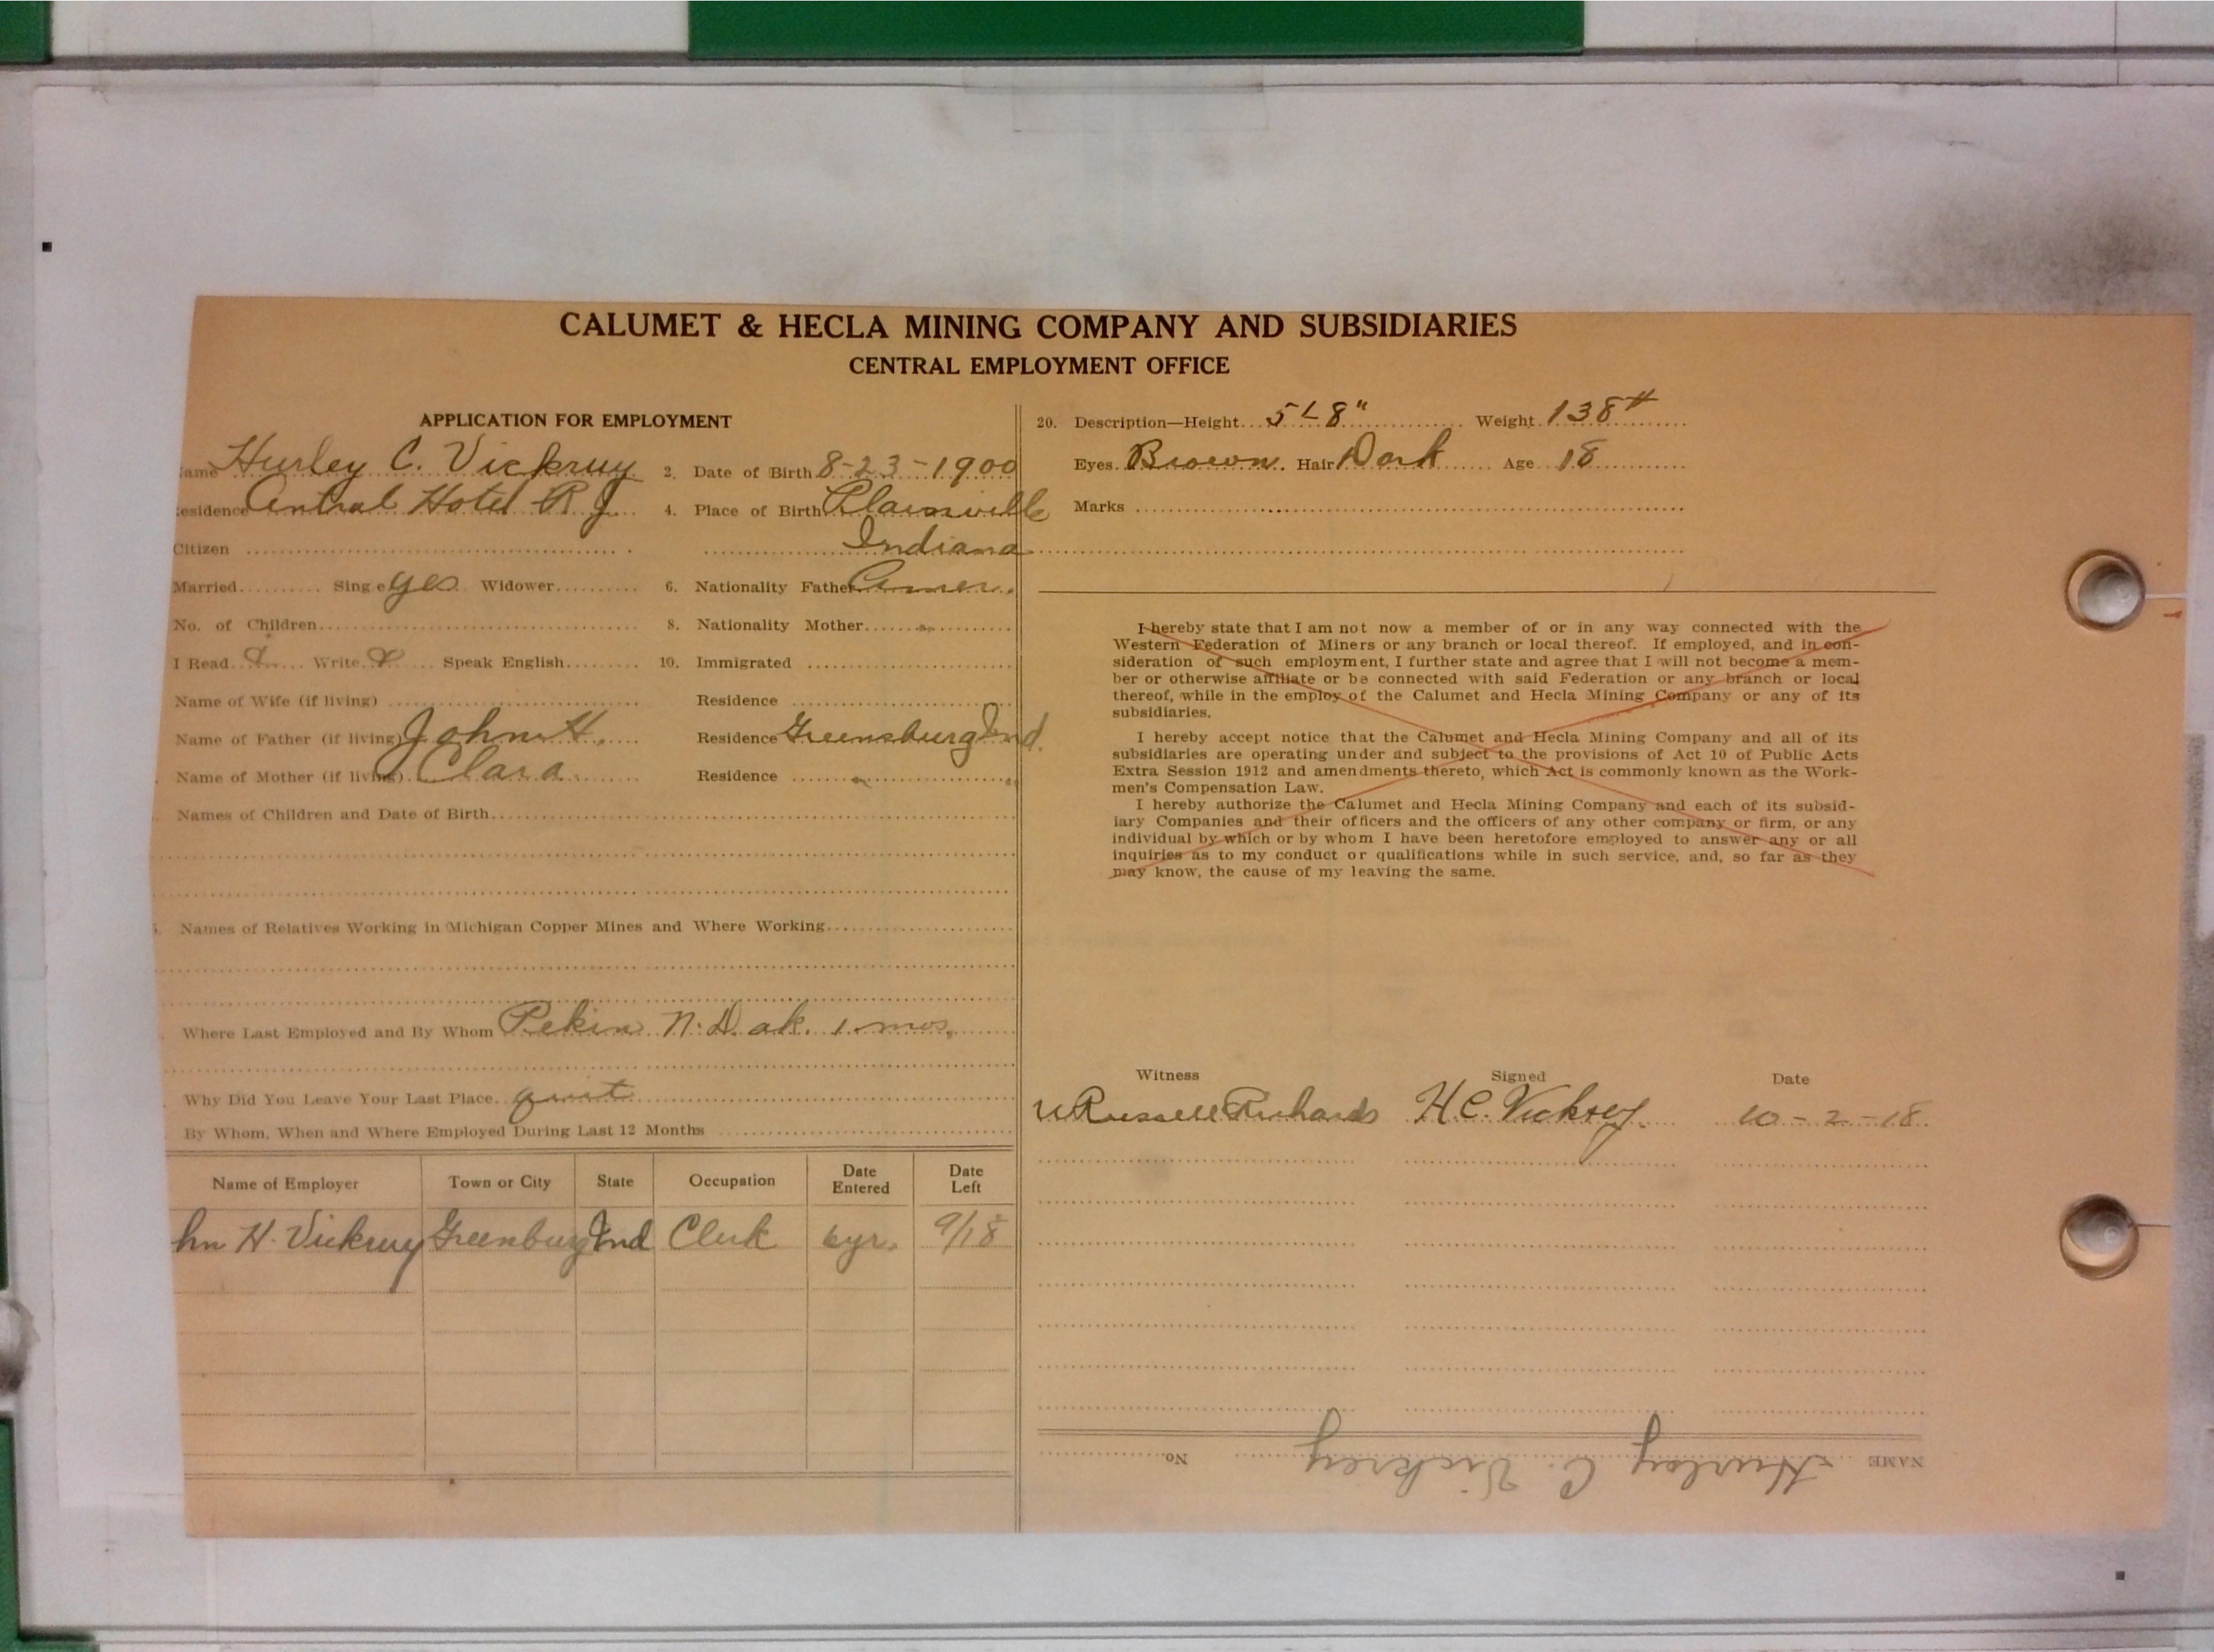 CALUMET & HECLA MINING COMPANY AND SUBSIDIARIES
CENTRAL EMPLOYMENT OFFICE
APPLICATION FOR EMPLOYMENT
ame Hurley C. Vickruy 2. Date of Birth 8-23-1900
esidence Central Hotel R J 4. Place of Birth Plainville
Citizen Indiana
Married Sing e yes Widower 6. Nationality Father Amer.
No. of Children 8. Nationality Mother "
I Read Write Speak English 10. Immigrated
Name of Wife (if living) Residence
Name of Father (if living) John H. Residence Greensburg Ind.
Name of Mother (if living) Clara Residence " "
Names of Children and Date of Birth
Names of Relatives Working in Michigan Copper Mines and Where Working
Where Last Employed and By Whom Pekin N. Dak. 1 mos.
Why Did You Leave Your Last Place quit
By Whom, When and Where Employed During Last 12 Months
Name of Employer Town or City State Occupation Date Entered Date Left
hn H. Vickruy Greenburg Ind Clerk 6yr. 9/18
20. Description—Height 5' 8" Weight 138#
Eyes Brown Hair Dark Age 18
Marks
I hereby state that I am not now a member of or in any way connected with the
Western Federation of Miners or any branch or local thereof. If employed, and in con-
sideration of such employment, I further state and agree that I will not become a mem-
ber or otherwise affiliate or be connected with said Federation or any branch or local
thereof, while in the employ of the Calumet and Hecla Mining Company or any of its
subsidiaries.
I hereby accept notice that the Calumet and Hecla Mining Company and all of its
subsidiaries are operating under and subject to the provisions of Act 10 of Public Acts
Extra Session 1912 and amendments thereto, which Act is commonly known as the Work-
men's Compensation Law.
I hereby authorize the Calumet and Hecla Mining Company and each of its subsid-
iary Companies and their officers and the officers of any other company or firm, or any
individual by which or by whom I have been heretofore employed to answer any or all
inquiries as to my conduct or qualifications while in such service, and, so far as they
may know, the cause of my leaving the same.
Witness Signed Date
W Russell Richards H. C. Vickrey 10-2-18
NAME Hurley C. Vickrey No.